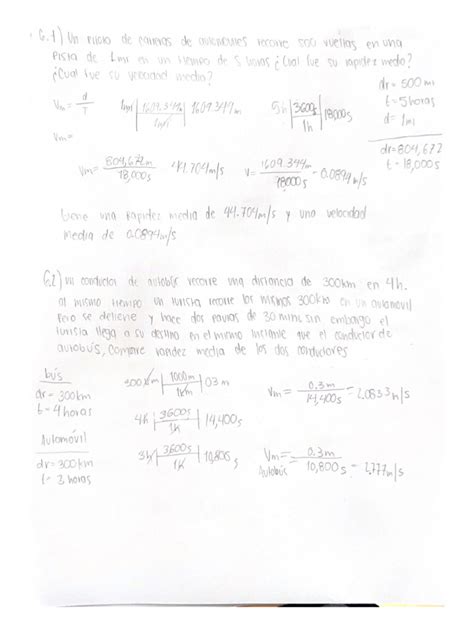 6.1) Un piloto de carreras de automoviles recorre 500 vueltas en una
pista de 1mi en un tiempo de 5 horas ¿Cual fue su rapidez media?
¿Cual fue su velocidad media?
dr = 500 mi
t = 5 horas
d = 1mi
dr = 804,672
t = 18,000s
Vm = d/T
1609.344m
1609.344m
5h | 3600s / 1h | 18000s
Vm =
Vm = 804,672m / 18,000s = 44.704m/s
V = 1609.344m / 18000s = 0.0894m/s
tiene una rapidez media de 44.704m/s y una velocidad
media de 0.0894m/s
6.2) un conductor de autobús recorre una distancia de 300km en 4h.
al mismo tiempo un turista recorre los mismos 300km en un automovil
pero se detiene y hace dos pausas de 30 mins. sin embargo el
turista llega a su destino en el mismo instante que el conductor de
autobús, compare la rapidez media de los dos conductores
bús
dr = 300km
t = 4 horas
Automóvil
dr = 300km
t = 3 horas
300km | 1000m / 1km | 03 m
4h | 3600s / 1h | 14,400s
3h | 3600s / 1h | 10,800s
Vm = 0.3m / 14,400s = 2.0833m/s
Vm = 0.3m / 10,800s = 2,777m/s
Autobús